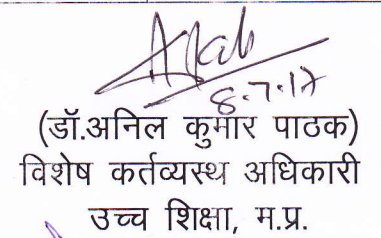 8.7.17
(डॉ.अनिल कुमार पाठक)
विशेष कर्तव्यस्थ अधिकारी
उच्च शिक्षा, म.प्र.